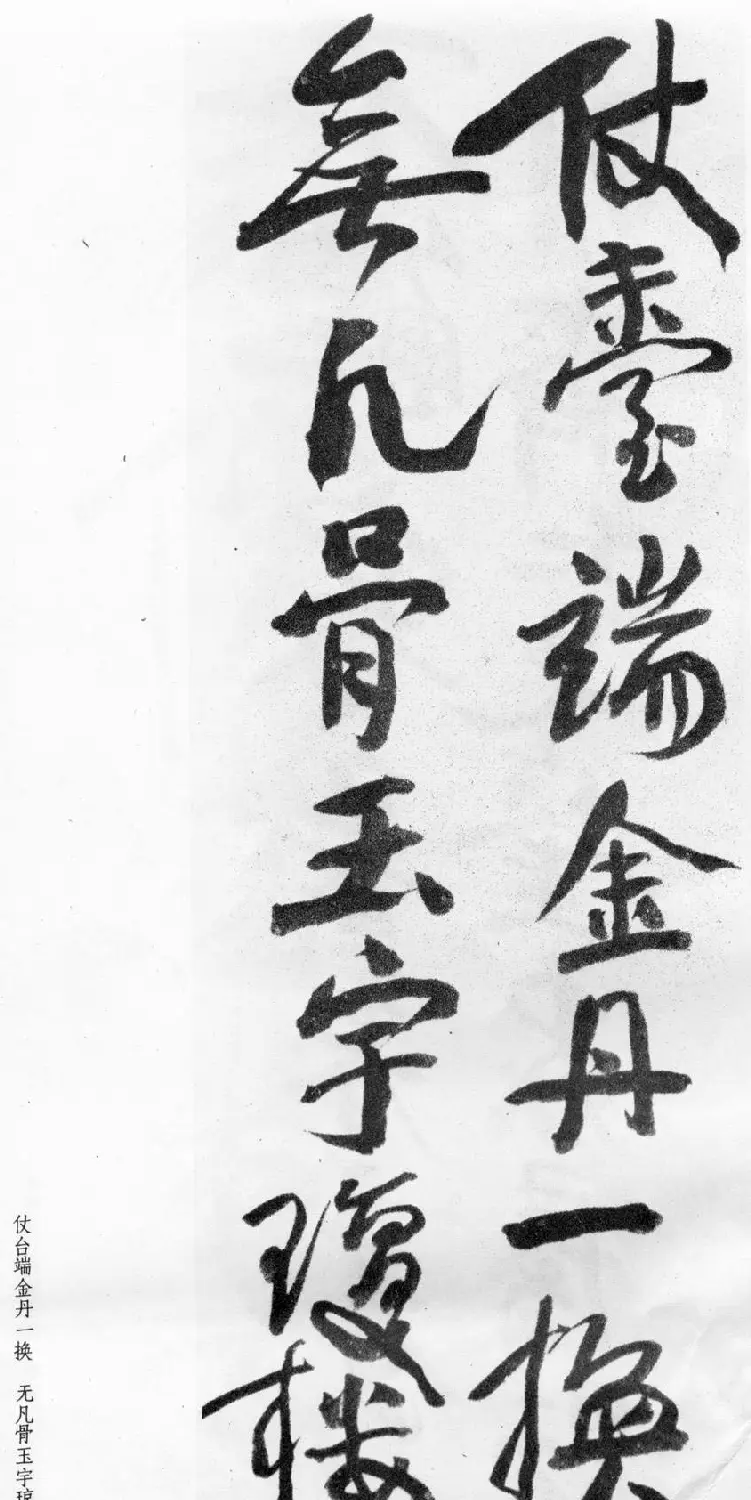 仗臺端金丹一換
無凡骨玉宇瓊樓
仗台端金丹一换 无凡骨玉宇琼